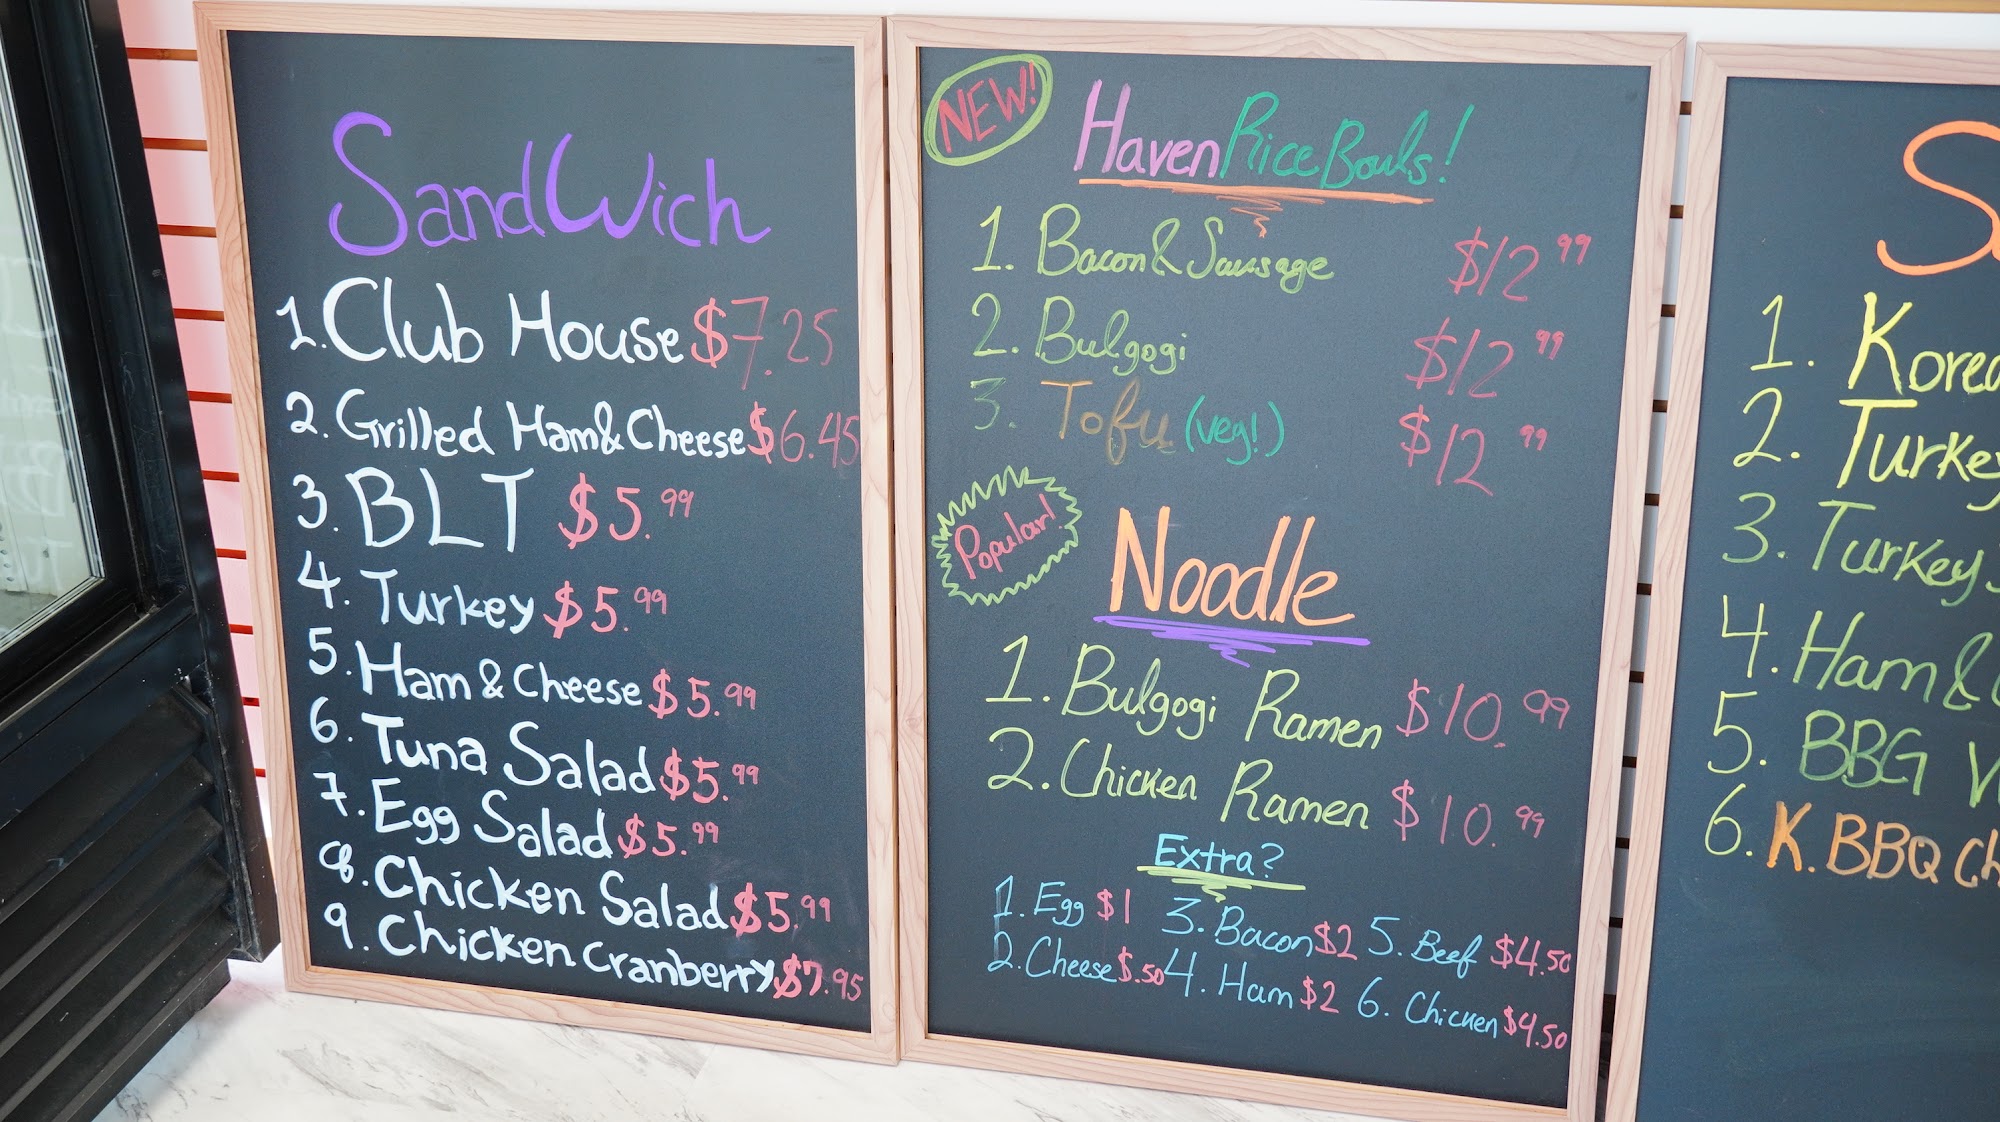 SandWich
1. Club House $7.25
2. Grilled Ham & Cheese $6.45
3. BLT $5.99
4. Turkey $5.99
5. Ham & Cheese $5.99
6. Tuna Salad $5.99
7. Egg Salad $5.99
8. Chicken Salad $5.99
9. Chicken Cranberry $7.95
NEW!
Haven Rice Bowls!
1. Bacon & Sausage $12.99
2. Bulgogi $12.99
3. Tofu (veg!) $12.99
Popular!
Noodle
1. Bulgogi Ramen $10.99
2. Chicken Ramen $10.99
Extra?
1. Egg $1 3. Bacon $2 5. Beef $4.50
2. Cheese $.50 4. Ham $2 6. Chicken $4.50
S
1. Korea
2. Turkey
3. Turkey
4. Ham &
5. BBG
6. K.BBQ Ch